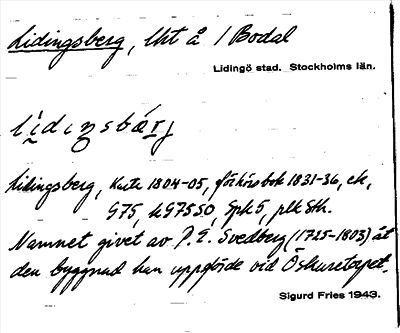 Lidingsberg, lht å 1 Bodal
Lidingö stad. Stockholms län.
lídıŋsbærj
Lidingsberg, Karta 1804-05, förhörsbok 1831-36, ek,
G75, hG75 SO, Spk 5, plk Sth.
Namnet givet av P. E. Svedberg (1725-1803) åt
den byggnad han uppförde vid Öskaretorpet.
Sigurd Fries 1943.